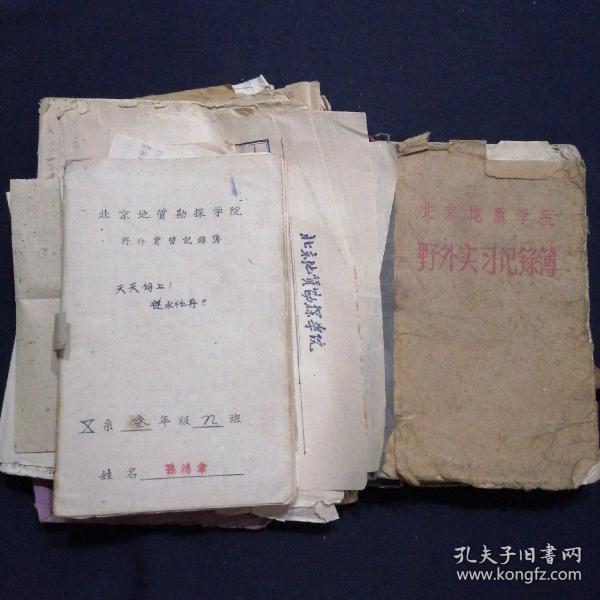 北京地質勘探学院
野外實習記錄簿
天天向上!
X系 叁年級 九班
姓名 孫鴻章
北京地質勘探学院
北京地质学院
野外实习记錄簿
孔夫子旧书网
www.kongfz.com